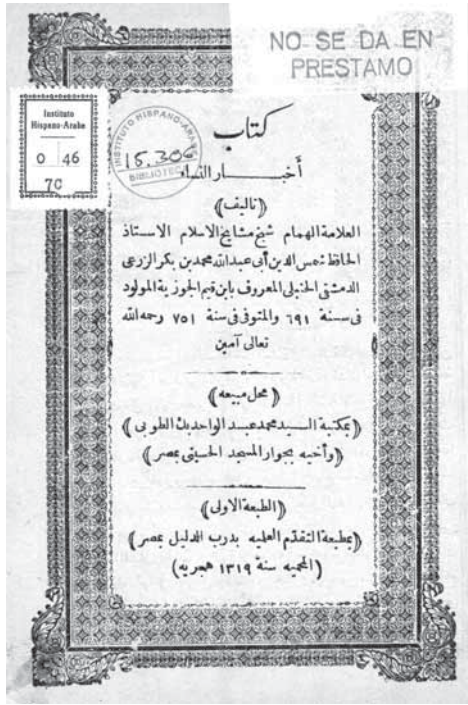 NO SE DA EN
PRESTAMO
Instituto
Hispano-Arabe
0 46
7C
INSTITUTO HISPANO-ARABE
15.306
BIBLIOTECA
كتاب
أخبار النساء
(تأليف)
العلامة الهمام شيخ مشايخ الاسلام الاستاذ
الحافظ شمس الدين أبي عبد الله محمد بن بكر الزرعي
الدمشقى الحنبلى المعروف بابن قيم الجوزية المولود
فى سنة ٦٩١ والمتوفى فى سنة ٧٥١ رحمه الله
تعالى آمين
(محل مبيعه)
(بمكتبة السيد محمد عبد الواحد بك الطوبى)
(وأخيه بجوار المسجد الحسينى بمصر)
(الطبعة الاولى)
(بمطبعة التقدّم العلميه بدرب الدليل بمصر)
(المحميه سنة ١٣١٩ هجريه)